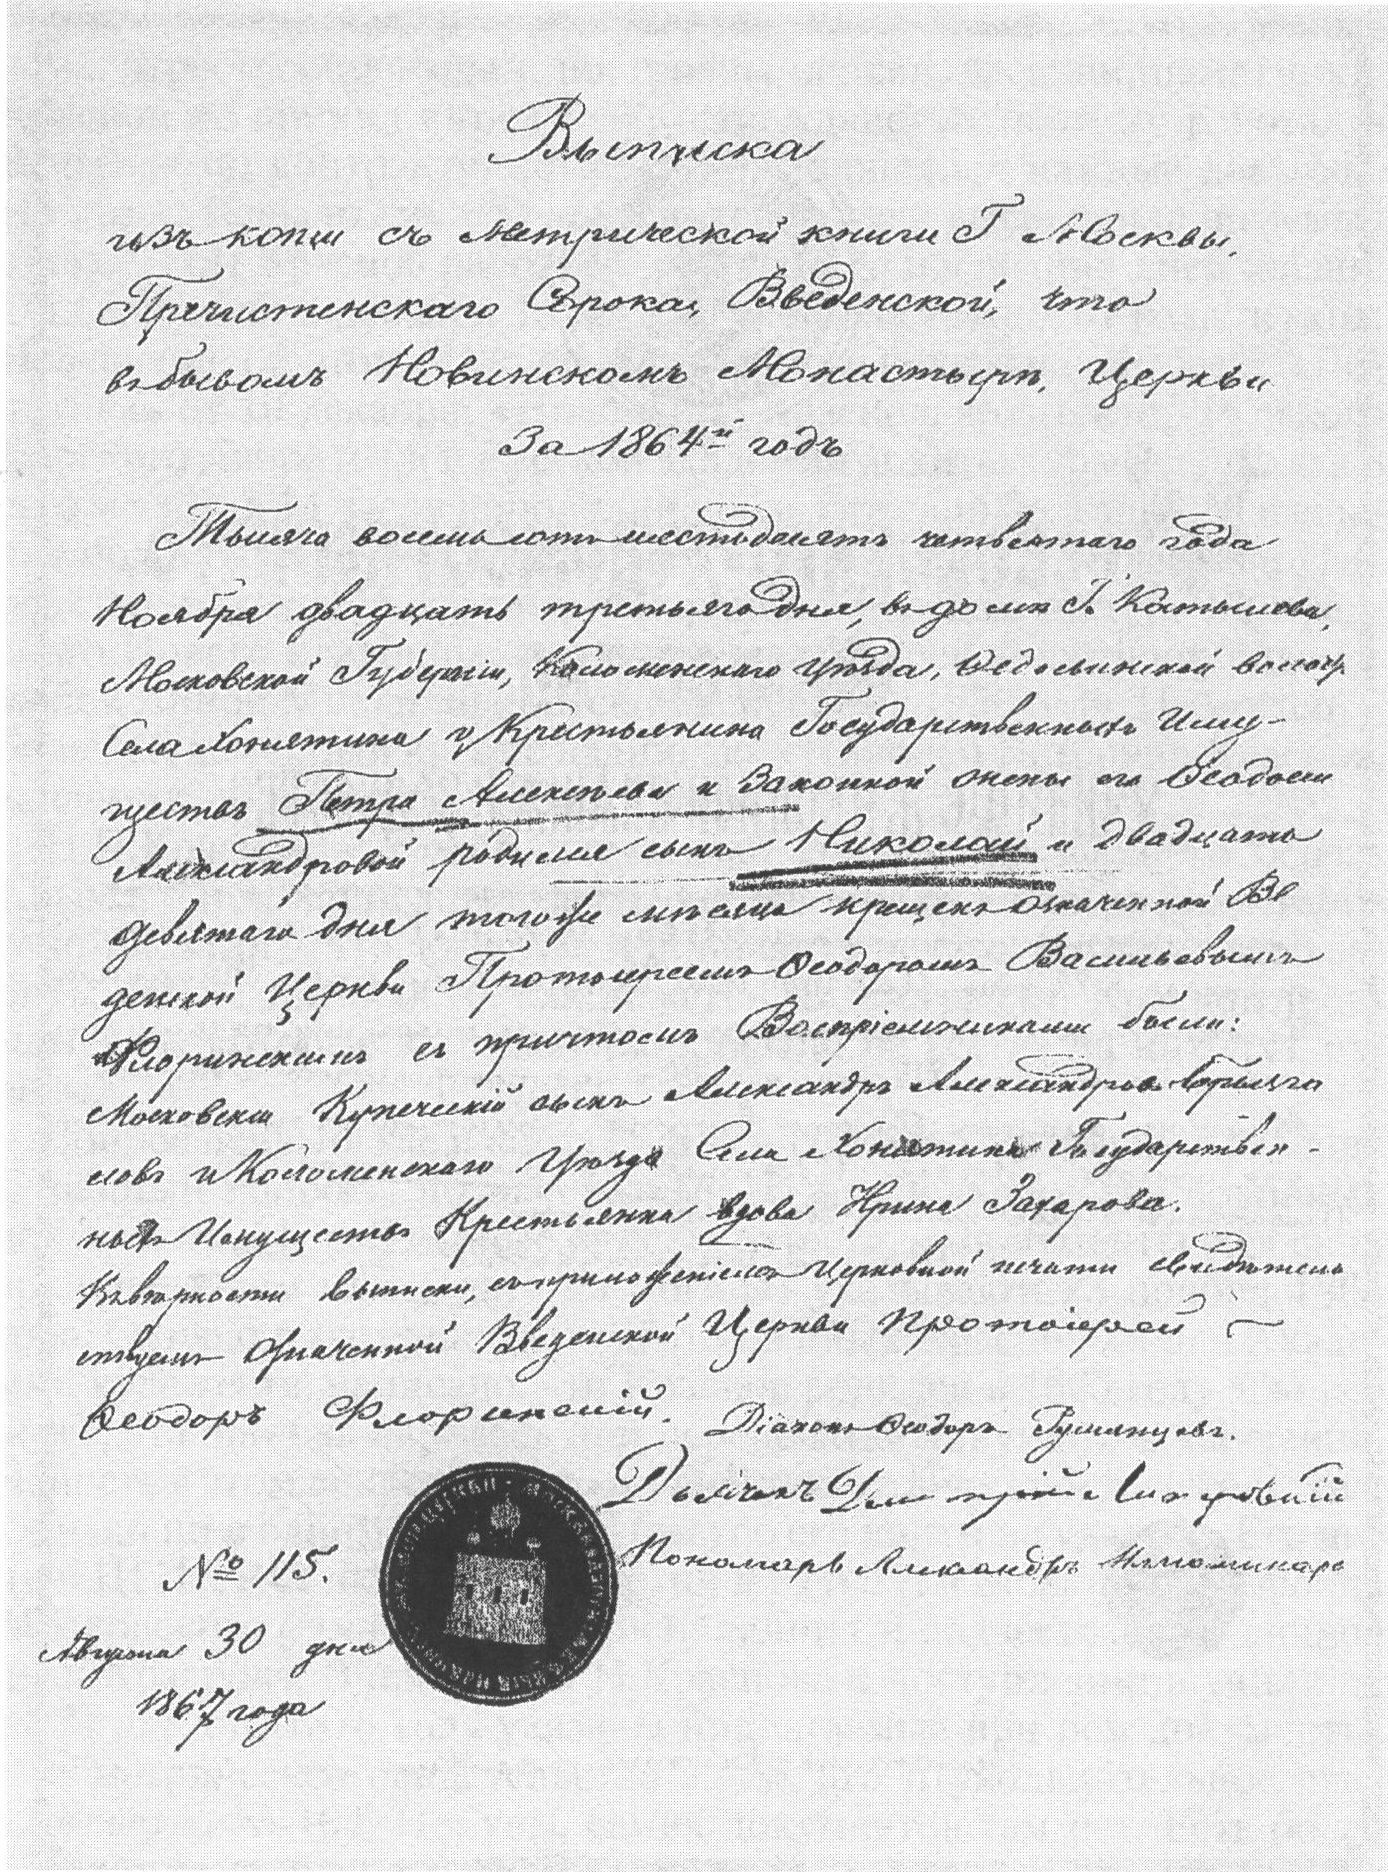 Выписка
изъ копiи съ метрической книги Г Москвы,
Пречистенскаго Сорока, Введенской, что
въ бывомъ Новинскомъ Монастырѣ, Церкви
За 1864й годъ
Тысяча восемьсотъ шестьдесятъ четвертаго года
Ноября двадцать третьяго дня, въ домѣ Г.
Московской Губернiи, Коломенскаго Уѣзда, Ѳедосьинской волости
Села Хонятина у Крестьянина Государственныхъ Иму-
ществъ Петра Алексѣева и Законной жены его Ѳеодосiи
Александровой родился сынъ Николай и двадцать
девятаго дня тогоже мѣсяца крещенъ означенной Вве
денской Церкви Протоiереемъ Ѳеодоромъ Васильевымъ
Флоринскимъ съ причтомъ Воспрiемниками были:
Московскiй Купеческiй сынъ Александръ Александровъ
и Коломенскаго Уѣзда Села Хонятина Государствен-
ныхъ Имуществъ Крестьянка вдова Ирина Захарова.
Къ вѣрности выписки, съ приложенiемъ Церковной печати свидѣтель
ствуемъ Означенной Введенской Церкви Протоiерей
Ѳеодоръ Флоринскiй. Дiаконъ Ѳеодоръ Румянцовъ.
Дьячекъ Димитрiй
Пономарь Александръ
№ 115.
Августа 30 дня
1867 года